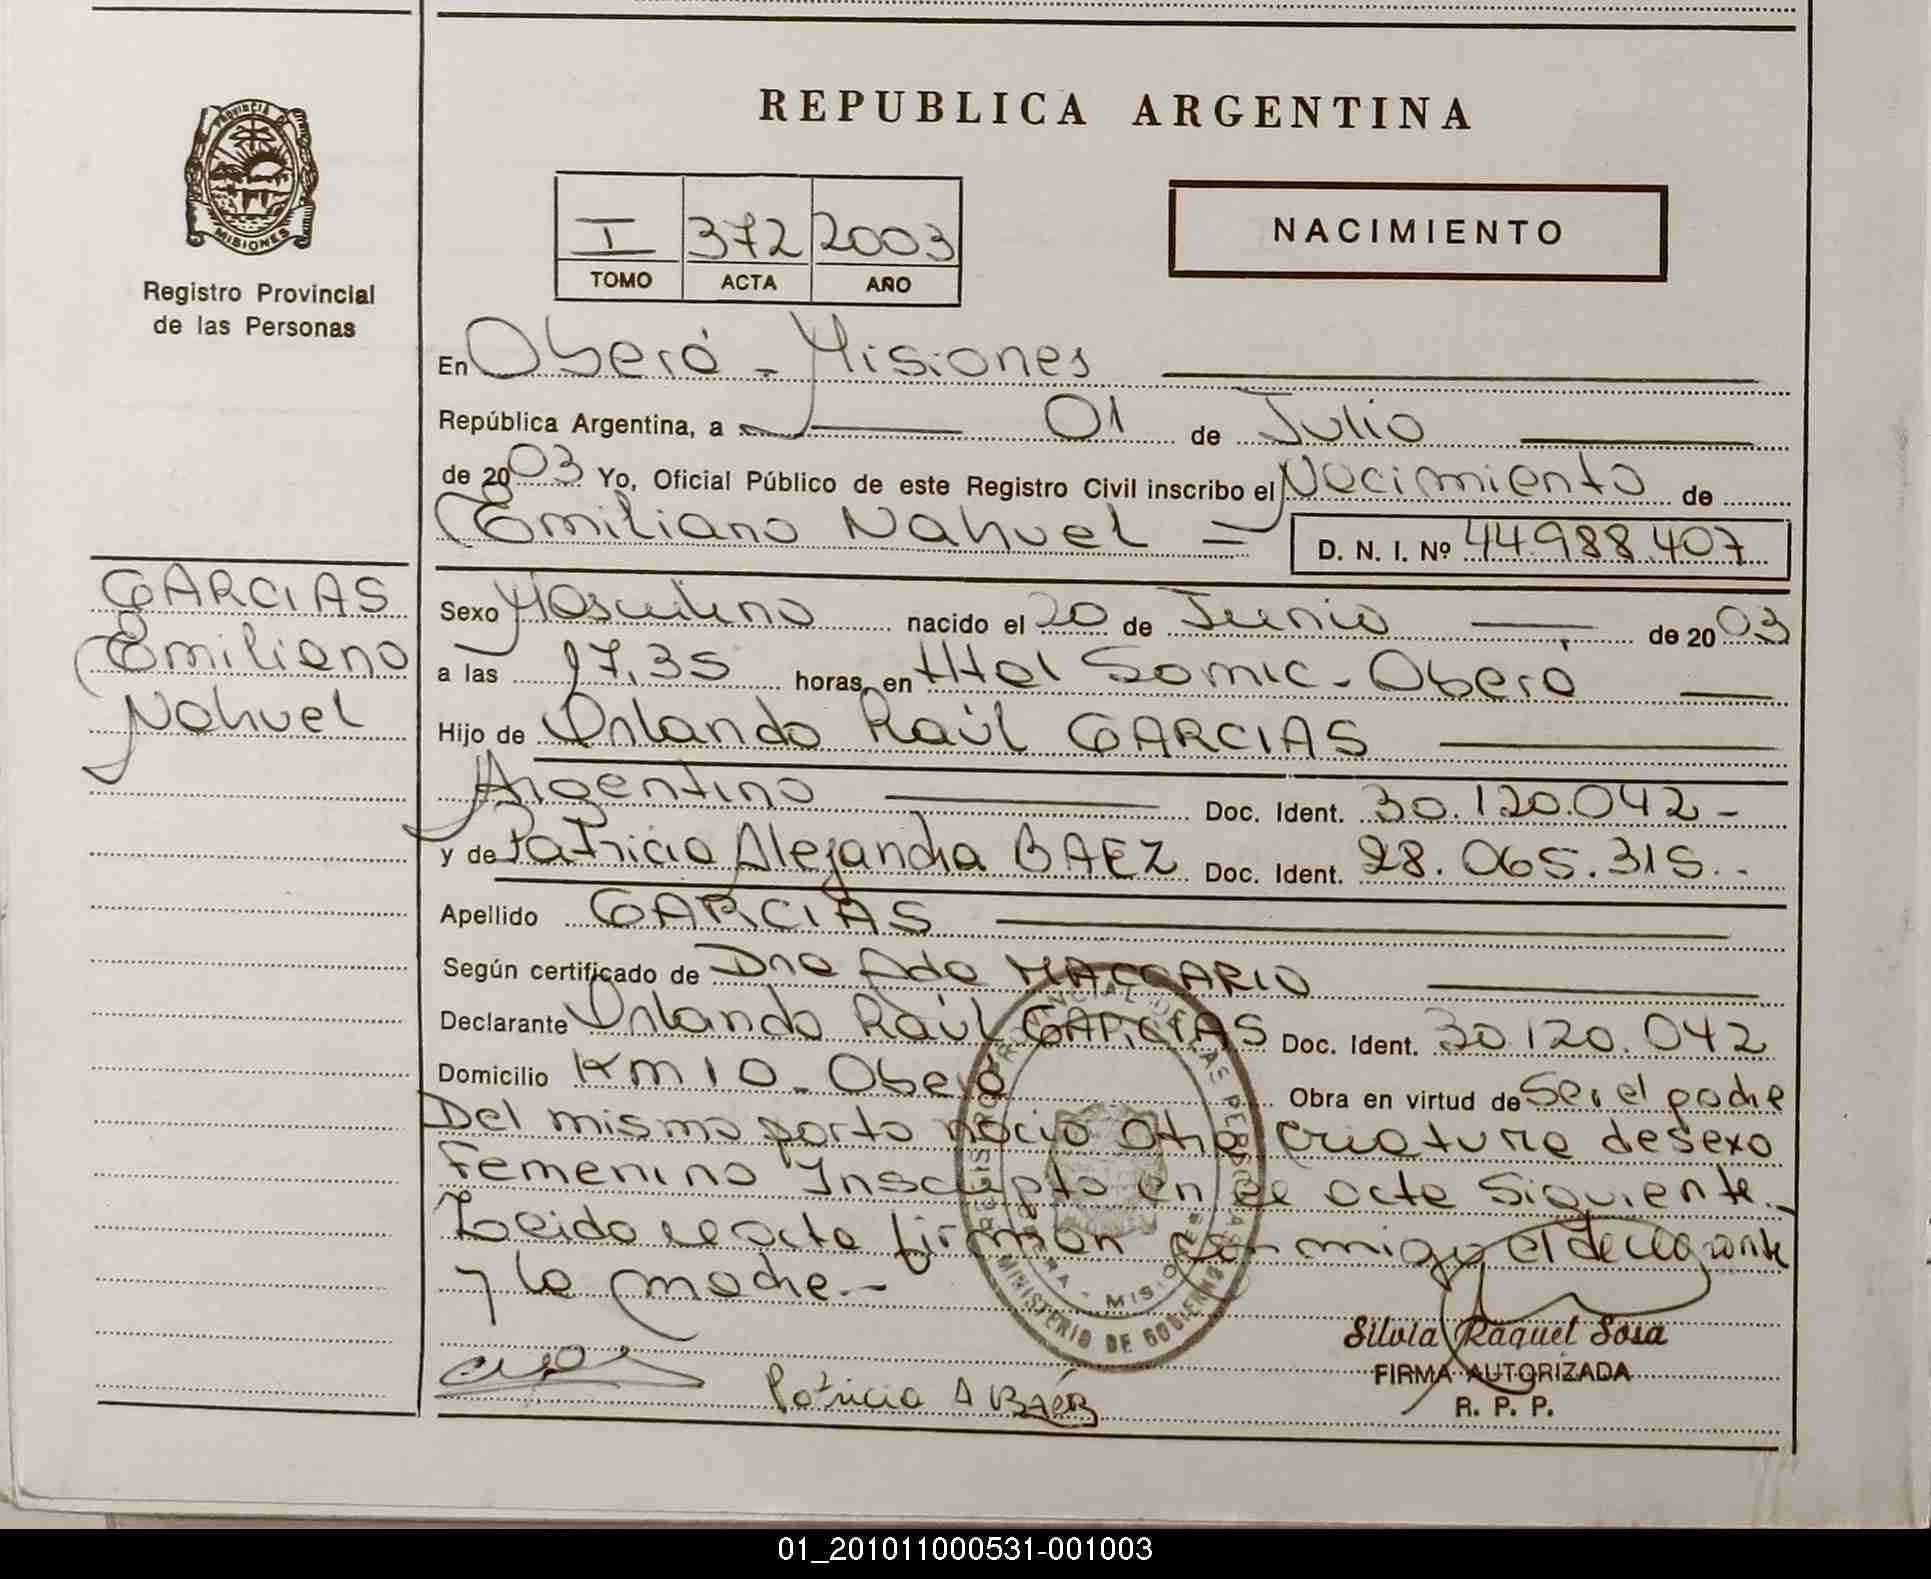 REPUBLICA ARGENTINA
PROVINCIA DE
MISIONES
Registro Provincial
de las Personas
I 372 2003
TOMO ACTA AÑO
NACIMIENTO
En Oberá - Misiones
República Argentina, a 01 de Julio
de 2003 Yo, Oficial Público de este Registro Civil inscribo el Nacimiento de
Emiliano Nahuel = D. N. I. Nº 44.988.407
GARCIAS
Emiliano
Nahuel
Sexo Masculino nacido el 20 de Junio de 2003
a las 17,35 horas, en Htal Samic - Oberá
Hijo de Orlando Raúl GARCIAS
Argentino Doc. Ident. 30.120.042 -
y de Patricia Alejandra BAEZ Doc. Ident. 28.065.315.-
Apellido GARCIAS
Según certificado de Dra Ada MACCARIO
Declarante Orlando Raúl GARCIAS Doc. Ident. 30.120.042
Domicilio Km 10 - Oberá Obra en virtud de Ser el padre
Del mismo parto nació otra criatura de sexo
Femenino Inscripto en el acta siguiente.-
Leida el acta firman conmigo el declarante
y la madre.-
REGISTRO PROVINCIAL DE LAS PERSONAS
MINISTERIO DE GOBIERNO
Patricia A BAEZ
Silvia Raquel Sosa
FIRMA AUTORIZADA
R. P. P.
01_201011000531-001003